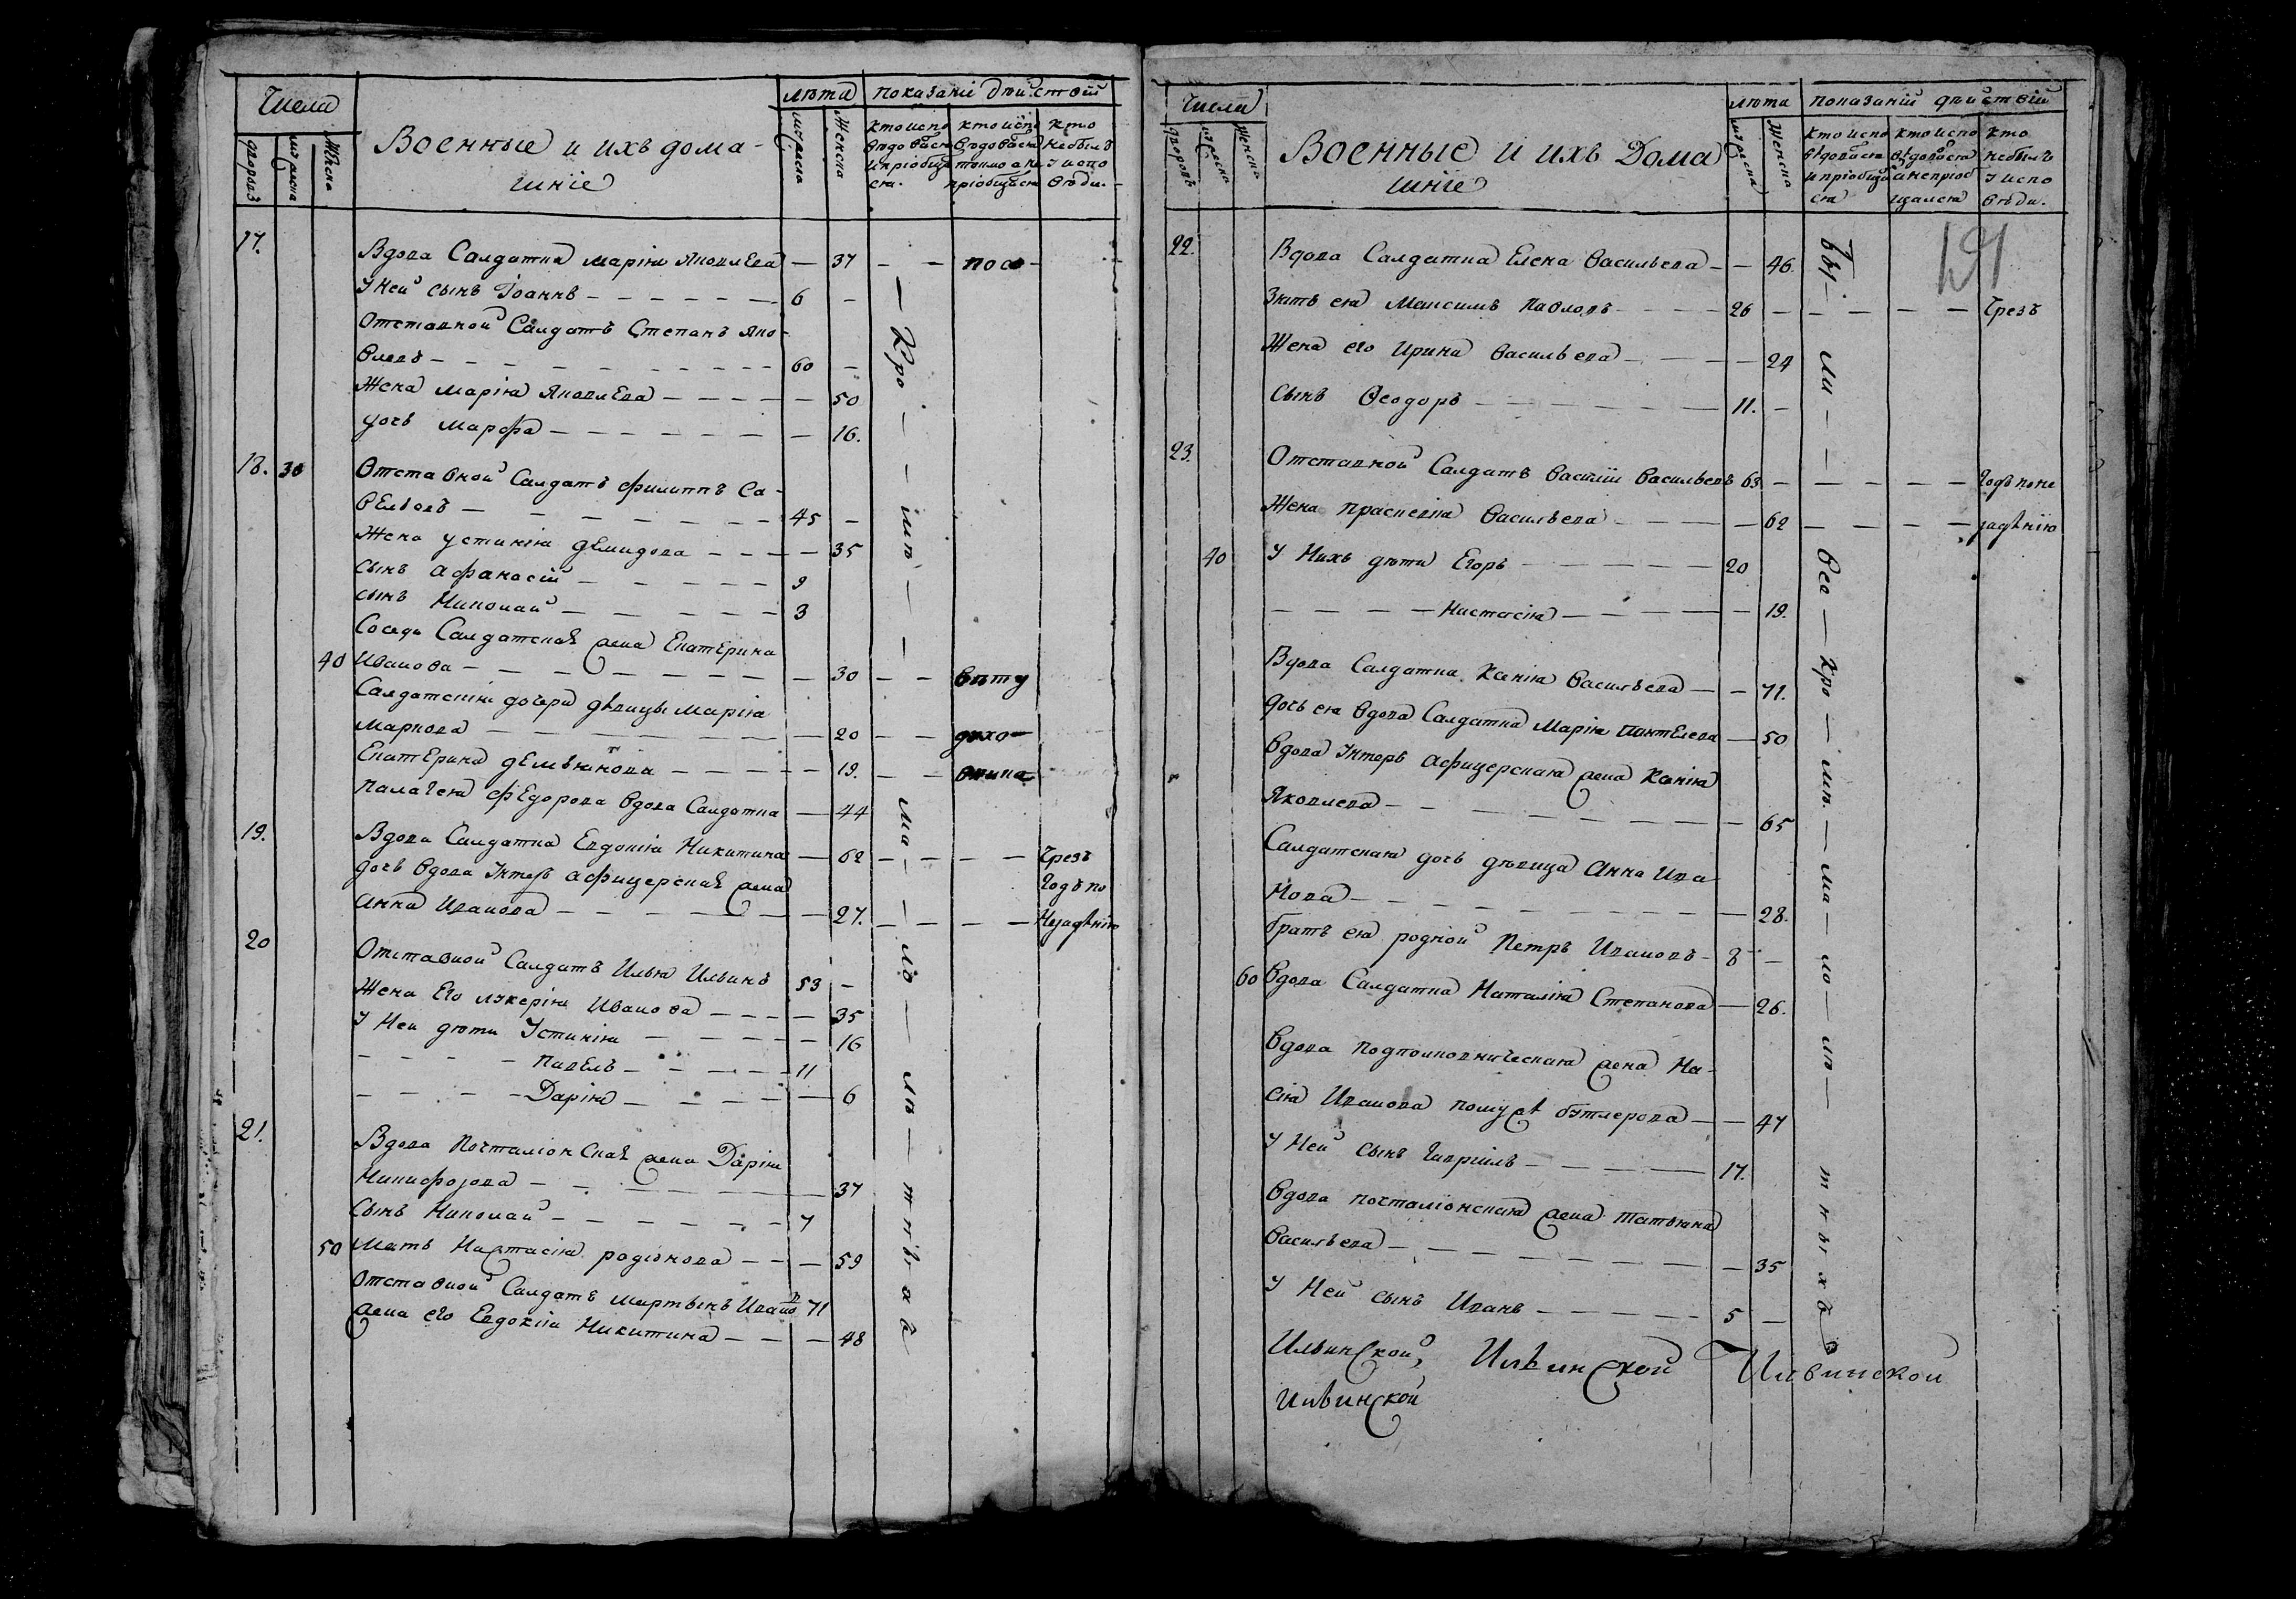 Числа
Военные и ихъ дома-
шніе
лѣта
показаніи дѣйствій
дворовъ
мужеска
Женска
мужеска
Женска
кто испо
вѣдовася
и пріобщи
ся.
кто испо
вѣдовася
токмо а не
пріобщися
кто
не былъ
у испо
вѣди.
17.
Вдова Салдатка марія Яковлева — 37 — — по со-
У ней сынъ Іоаннъ — 6 —
Отставной Салдатъ Степанъ Яко-
влевъ — 60 —
Жена марія Яковлева — 50
дочь марфа — 16.
18. 30 Отставной Салдатъ филиппъ Са-
вельевъ — 45 —
Жена устинія демидова — 35
сынъ афанасій — 9
сынъ Николай — 3
Соседа Салдатская жена Екатерина
40 Иванова — 30 — — вѣту
Салдатскія дочери дѣвицы марія
маркова — 20 — — духо-
Екатерина дементьянова — 19. — — вника
Палагея федорова вдова Салдатка — 44
19. Вдова Салдатка Евдокія Никитина — 62 — — — Чрезъ
дочь вдова Унтеръ афицерская жена
Годъ по
анна Иванова — 27. — — — Нерадѣнію
20
Отставной Салдатъ Илья Ильинъ 53 —
Жена Его лукерія Иванова — 35
У Неи дѣти Устинія — 16
— — — павелъ — 11
— — — Дарія — 6
21.
Вдова Почталіонская жена Дарія
Никифорова — 37
Сынъ Николай — 7
50 Мать Настасія родіонова — 59
Отставной Салдатъ мартынъ Ивановъ 71
жена его Евдокія Никитина — 48
— Кро — — мѣ — — ма — — ло — лѣ — т н ы х ъ
Числа
Военные и ихъ Дома
шніе
лѣта
показаній дѣйствій
дворовъ
мужеска
Женска
мужеска
Женска
кто испо
вѣдовася
и пріобщи
ся
кто испо
вѣдовася
а не пріоб
щался
кто
не былъ
у испо
вѣди.
191
22. Вдова Салдатка Елена Васильева — 46.
Зять ея Максимъ Павловъ — 26 — — — — Чрезъ
Жена его Ирина Васильева — 24
Сынъ Ѳеодоръ — 11. —
23.
Отставной Салдатъ Василіи Васильевъ 63. — — — — Годъ по не
Жена Прасковія Васильева — 62 — — — радѣнію
40 У Нихъ дѣти Егоръ — 20
— — — Настасія — 19.
Вдова Салдатка Ксенія Васильева — 71.
дочь ея вдова Салдатка Марія Пантелева — 50
Вдова Унтеръ афицерская жена Ксенія
Яковлева — 65
Салдатская дочь дѣвица Анна Ива
Нова — 28.
братъ ея родной Петръ Ивановъ — 8 —
60 Вдова Салдатка Наталія Степанова — 26.
Вдова подполковническая жена На-
сія Иванова по мужѣ бутлерова — 47
У Ней сынъ Гавріилъ — 17.
Вдова почталіонская жена татьяна
Васильева — 35
У Ней сынъ Иванъ — 5 —
Бы — ли — — — Всѣ — Кро — мѣ — ма — ло — лѣ — т н ы х ъ
Ильинской, Ильинской Ильинской
Ильинской